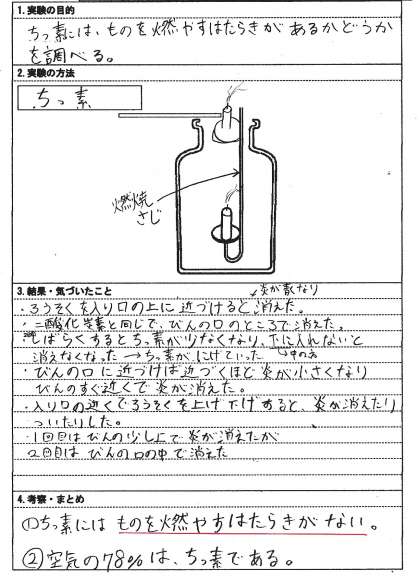 1. 実験の目的
ちっ素には、ものを燃やすはたらきがあるかどうか
を調べる。
2. 実験の方法
ちっ素
燃焼
さじ
3. 結果・気づいたこと
炎が散なり
・ろうそくを入り口の上に近づけると消えた。
・二酸化炭素と同じで、びんの口のところで消えた。
しばらくするとちっ素が少なくなり、下に入れないと
消えなくなった→ちっ素がにげていった
中の方
・びんの口に近づけば近づくほど炎が小さくなり
びんのすぐ近くで炎が消えた。
・入り口の近くでろうそくを上げ下げすると、炎が消えたり
ついたりした。
・1回目はびんの少し上で炎が消えたが
2回目はびんの口の中で消えた
4. 考察・まとめ
①ちっ素にはものを燃やすはたらきがない。
②空気の78%は、ちっ素である。